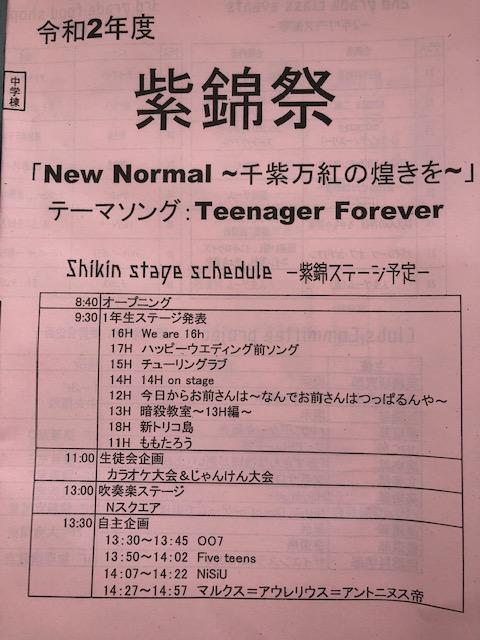 令和2年度
中学棟
紫錦祭
「New Normal ~千紫万紅の煌きを~」
テーマソング:Teenager Forever
Shikin stage schedule －紫錦ステージ予定－
8:40 オープニング
9:30 1年生ステージ発表
16H We are 16h
17H ハッピーウエディング前ソング
15H チューリングラブ
14H 14H on stage
12H 今日からお前さんは～なんでお前さんはつっぱるんや～
13H 暗殺教室～13H編～
18H 新トリコ島
11H ももたろう
11:00 生徒会企画
カラオケ大会&じゃんけん大会
13:00 吹奏楽ステージ
Nスクエア
13:30 自主企画
13:30～13:45 OO7
13:50～14:02 Five teens
14:07～14:22 NiSiU
14:27～14:57 マルクス=アウレリウス=アントニヌス帝